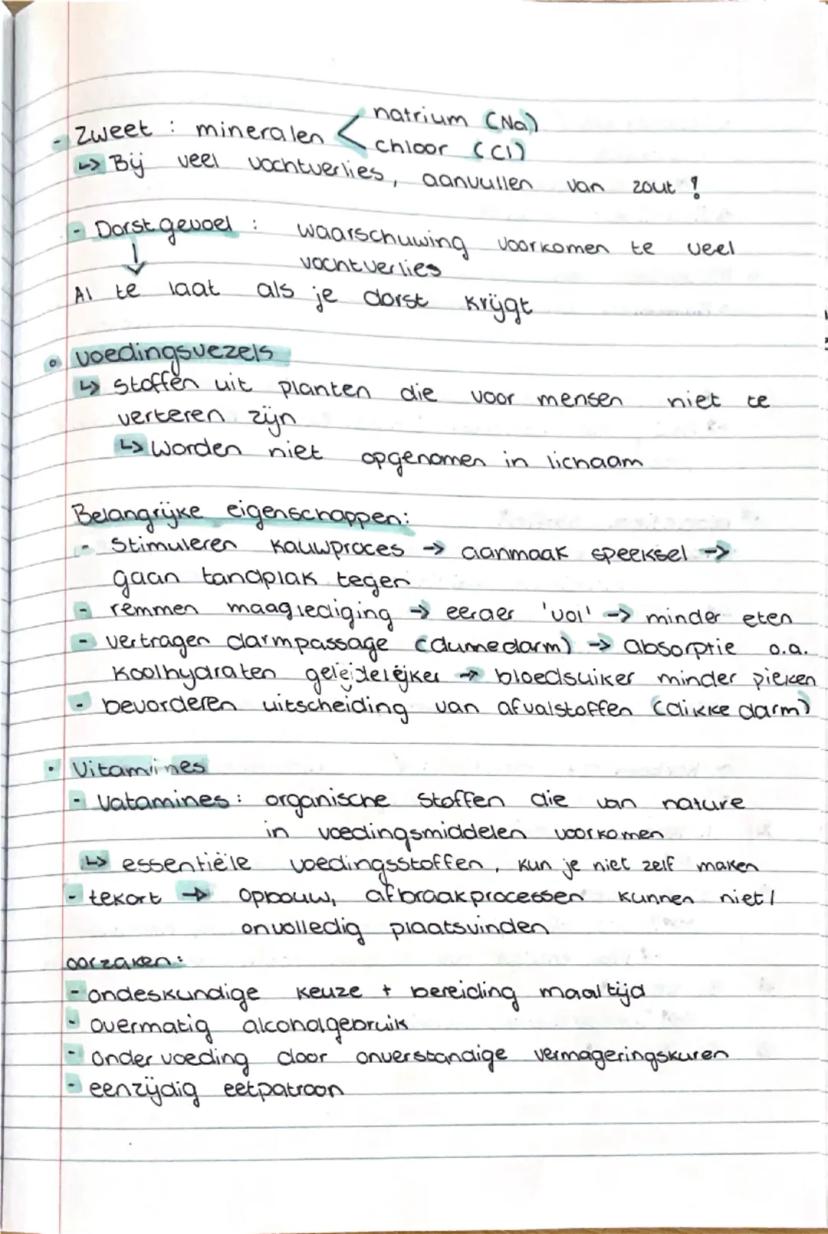 - Zweet : mineralen < natrium (Na)
chloor (Cl)
↳ Bij veel vochtverlies, aanvullen van zout !
- Dorstgevoel : waarschuwing voorkomen te veel
vochtverlies
↓
Al te laat als je dorst krijgt
• voedingsvezels
↳ stoffen uit planten die voor mensen niet te
verteren zijn
↳ Worden niet opgenomen in lichaam
Belangrijke eigenschappen:
- Stimuleren kauwproces → aanmaak speeksel →
gaan tandplak tegen
- remmen maaglediging → eerder 'vol' → minder eten
- vertragen darmpassage (dunnedarm) → absorptie o.a.
koolhydraten geleidelijker → bloedsuiker minder pieken
- bevorderen uitscheiding van afvalstoffen (dikke darm)
• Vitamines
- Vatamines: organische stoffen die van nature
in voedingsmiddelen voorkomen
↳ essentiële voedingsstoffen, kun je niet zelf maken
- tekort → opbouw, afbraakprocessen kunnen niet/
onvolledig plaatsvinden
oorzaken:
- ondeskundige keuze + bereiding maaltijd
- overmatig alcoholgebruik
- onder voeding door onverstandige vermageringskuren
- eenzijdig eetpatroon